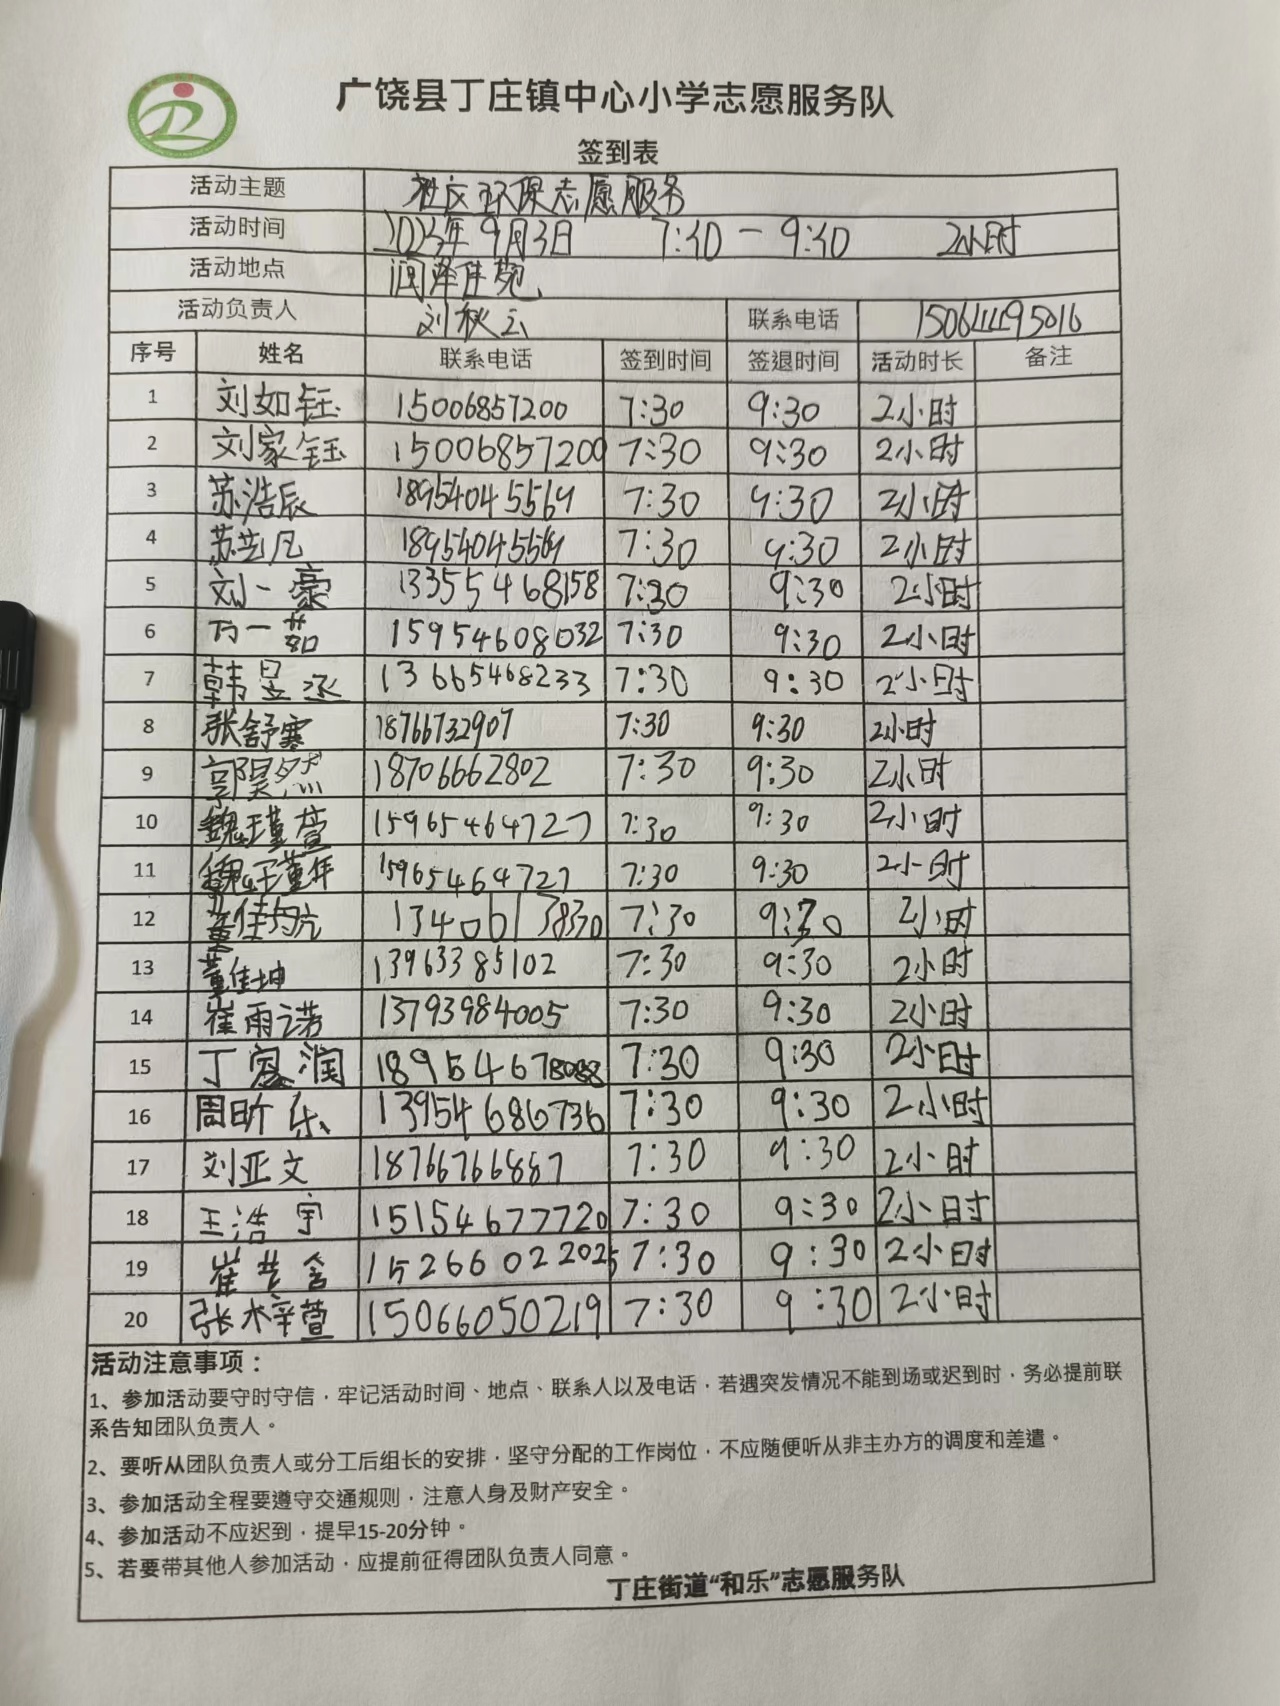 广饶县丁庄镇中心小学志愿服务队
签到表
活动主题 社区环保志愿服务
活动时间 9月3日 7:30-9:30 2小时
活动地点 润泽佳苑
活动负责人 刘秋云 联系电话
序号 姓名 联系电话 签到时间 签退时间 活动时长 备注
1 刘如钰 15006857200 7:30 9:30 2小时
2 刘家钰 15006857200 7:30 9:30 2小时
3 苏浩辰 18954045569 7:30 9:30 2小时
4 18954045569 7:30 9:30 2小时
5 刘一豪 13355468158 7:30 9:30 2小时
6 15954608032 7:30 9:30 2小时
7 韩昱丞 13665468233 7:30 9:30 2小时
8 张舒寒 18766732907 7:30 9:30 2小时
9 郭昊然 18706662802 7:30 9:30 2小时
10 魏瑾萱 15965464727 7:30 9:30 2小时
11 15965464727 7:30 9:30 2小时
12 13406173830 7:30 9:30 2小时
13 董佳坤 13963385102 7:30 9:30 2小时
14 崔雨诺 13793984005 7:30 9:30 2小时
15 7:30 9:30 2小时
16 周昕乐 13954686736 7:30 9:30 2小时
17 刘亚文 18766766887 7:30 9:30 2小时
18 王浩宇 15154677720 7:30 9:30 2小时
19 15266022025 7:30 9:30 2小时
20 张梓萱 15066050219 7:30 9:30 2小时
活动注意事项：
1、参加活动要守时守信，牢记活动时间、地点、联系人以及电话，若遇突发情况不能到场或迟到时，务必提前联
系告知团队负责人。
2、要听从团队负责人或分工后组长的安排，坚守分配的工作岗位，不应随便听从非主办方的调度和差遣。
3、参加活动全程要遵守交通规则，注意人身及财产安全。
4、参加活动不应迟到，提早15-20分钟。
5、若要带其他人参加活动，应提前征得团队负责人同意。
丁庄街道“和乐”志愿服务队